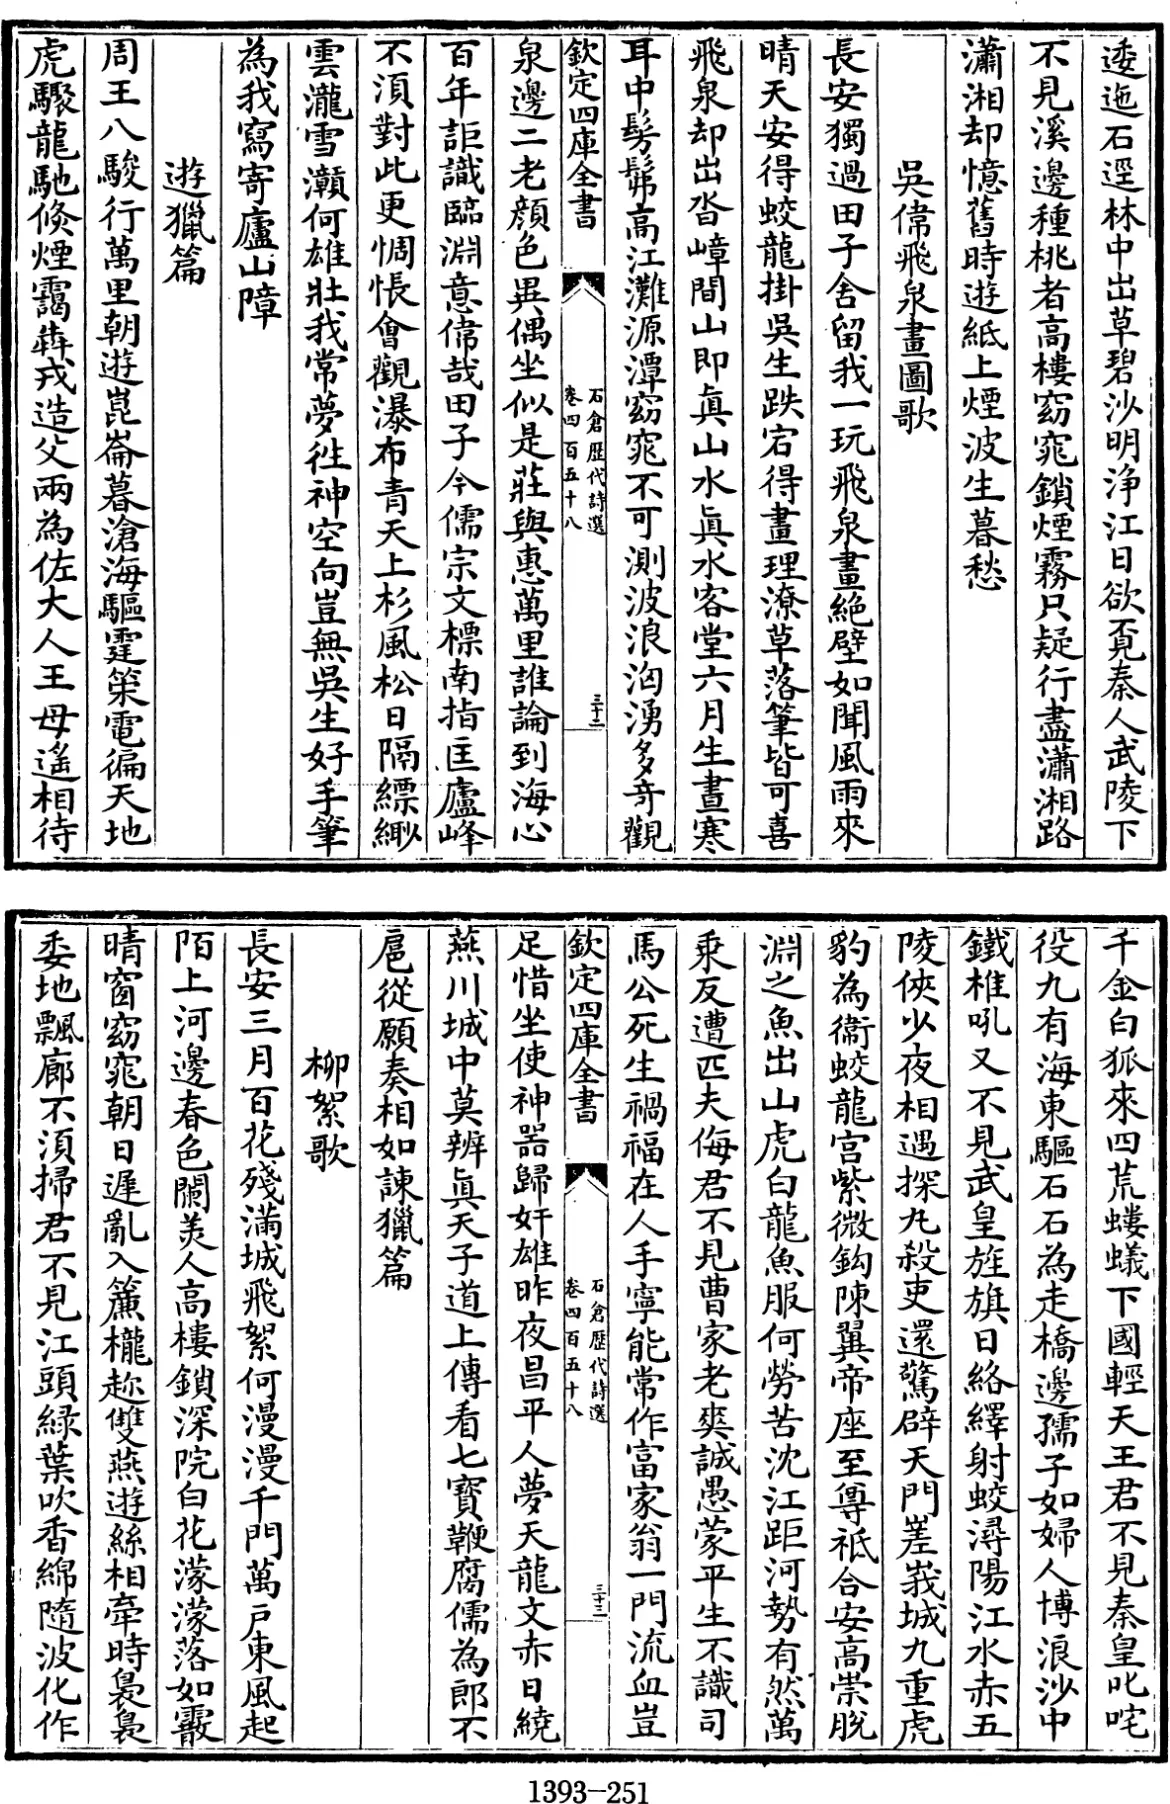 逶迤石逕林中出草碧沙明浄江日欲覔秦人武陵下
不見溪邊種桃者高樓窈窕鎖煙霧只疑行盡瀟湘路
瀟湘却憶舊時遊紙上煙波生暮愁
吳偉飛泉畫圖歌
長安獨過田子舍留我一玩飛泉畫絶壁如聞風雨來
晴天安得蛟龍掛吳生跌宕得畫理潦草落筆皆可喜
飛泉却出沓嶂間山即真山水真水客堂六月生晝寒
耳中髣髴高江灘源潭窈窕不可測波浪洶湧多奇觀
欽定四庫全書
石倉歷代詩選
卷四百五十八
三十二
泉邊二老顔色異偶坐似是莊與惠萬里誰論到海心
百年詎識臨淵意偉哉田子今儒宗文標南指匡廬峰
不須對此更惆悵會觀瀑布青天上杉風松日隔縹緲
雲瀧雪瀨何雄壯我常夢徃神空向豈無吳生好手筆
為我寫寄廬山障
遊獵篇
周王八駿行萬里朝遊崑崙暮滄海驅霆策電徧天地
虎驟龍馳倐煙靄犇戎造父兩為佐大人王母遙相待
千金白狐來四荒螻蟻下國輕天王君不見秦皇叱咤
役九有海東驅石石為走橋邊孺子如婦人博浪沙中
鐵椎吼又不見武皇旌旗日絡繹射蛟潯陽江水赤五
陵俠少夜相遇探丸殺吏還驚辟天門嵳峩城九重虎
豹為衞蛟龍宫紫微鈎陳翼帝座至尊祗合安高崇脫
淵之魚出山虎白龍魚服何勞苦沈江距河勢有然萬
乘反遭匹夫侮君不見曹家老爽誠愚蒙平生不識司
馬公死生禍福在人手寧能常作富家翁一門流血豈
欽定四庫全書
石倉歷代詩選
卷四百五十八
三十三
足惜坐使神器歸奸雄昨夜昌平人夢天龍文赤日繞
燕川城中莫辨真天子道上傳看七寶鞭腐儒為郎不
扈從願奏相如諫獵篇
柳絮歌
長安三月百花殘滿城飛絮何漫漫千門萬戶東風起
陌上河邊春色闌美人高樓鎖深院白花濛濛落如霰
晴窗窈窕朝日遲亂入簾櫳趂雙燕遊絲相牽時裊裊
委地飄廊不須掃君不見江頭緑葉吹香綿隨波化作
1393-251